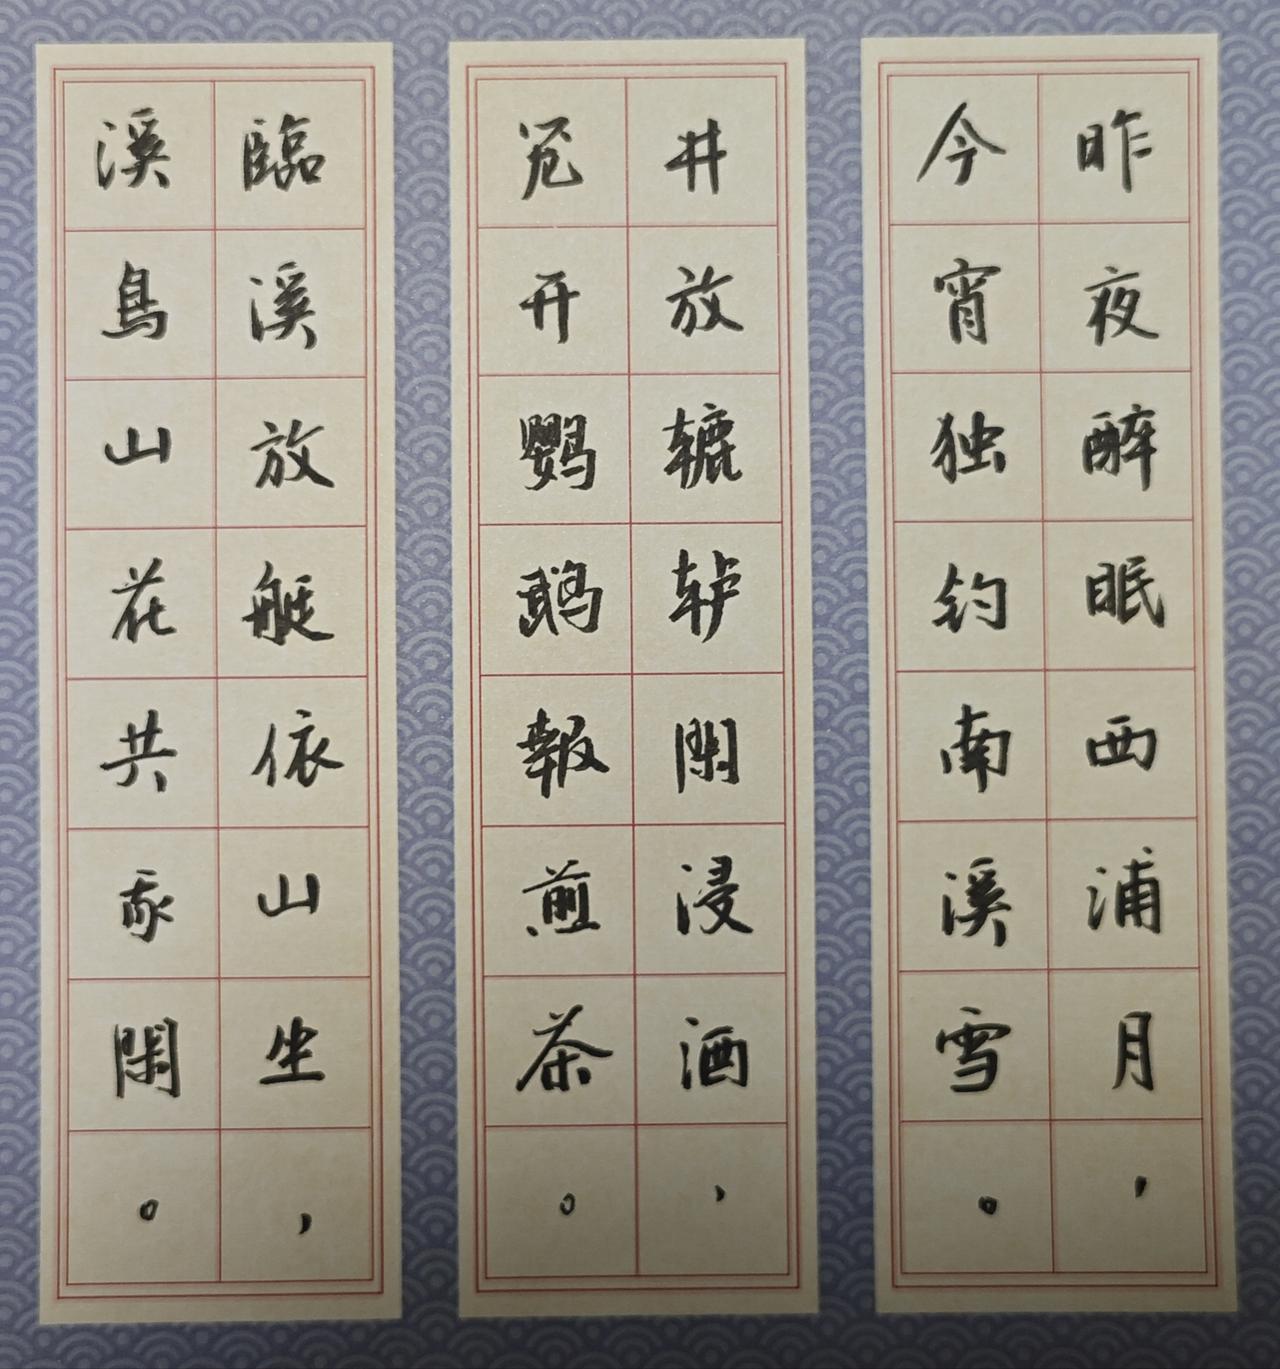 昨夜醉眠西浦月，
今宵独钓南溪雪。
井放辘轳閑浸酒，
笼开鹦鹉報煎茶。
臨溪放艇依山坐，
溪鳥山花共我閑。